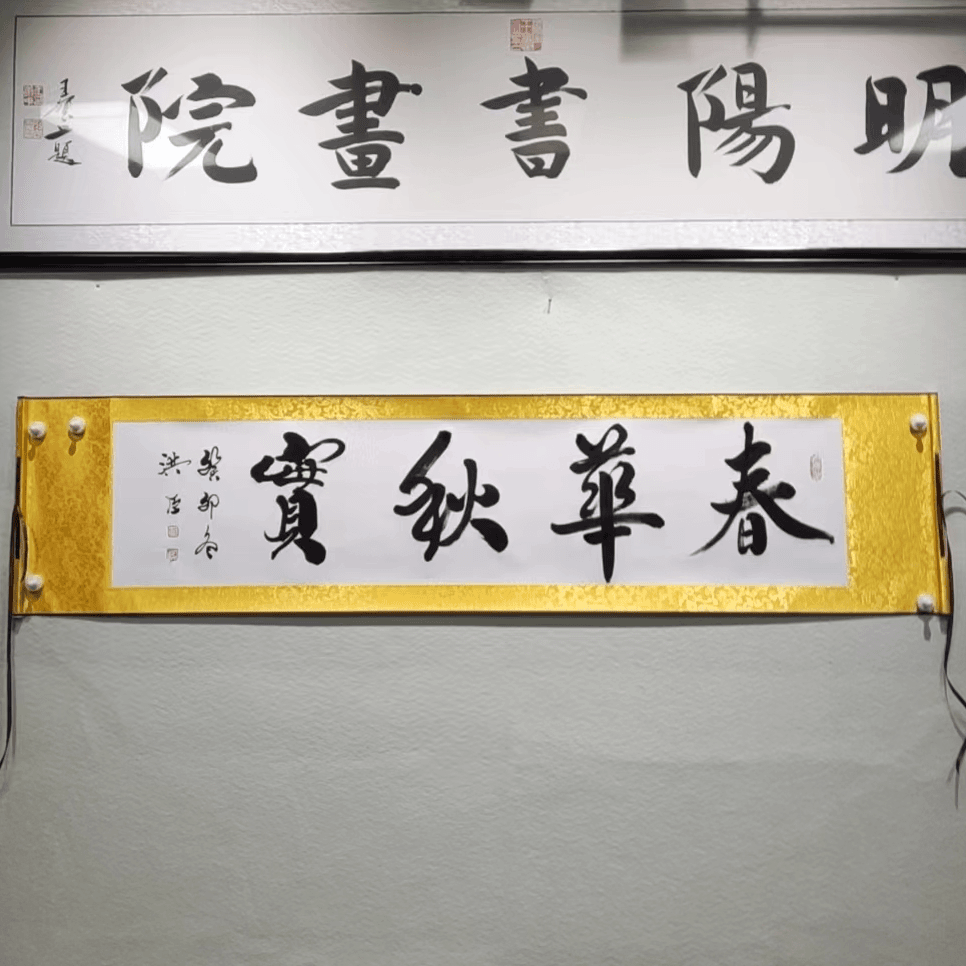 明陽書畫院
題
春華秋實
癸卯冬
洪